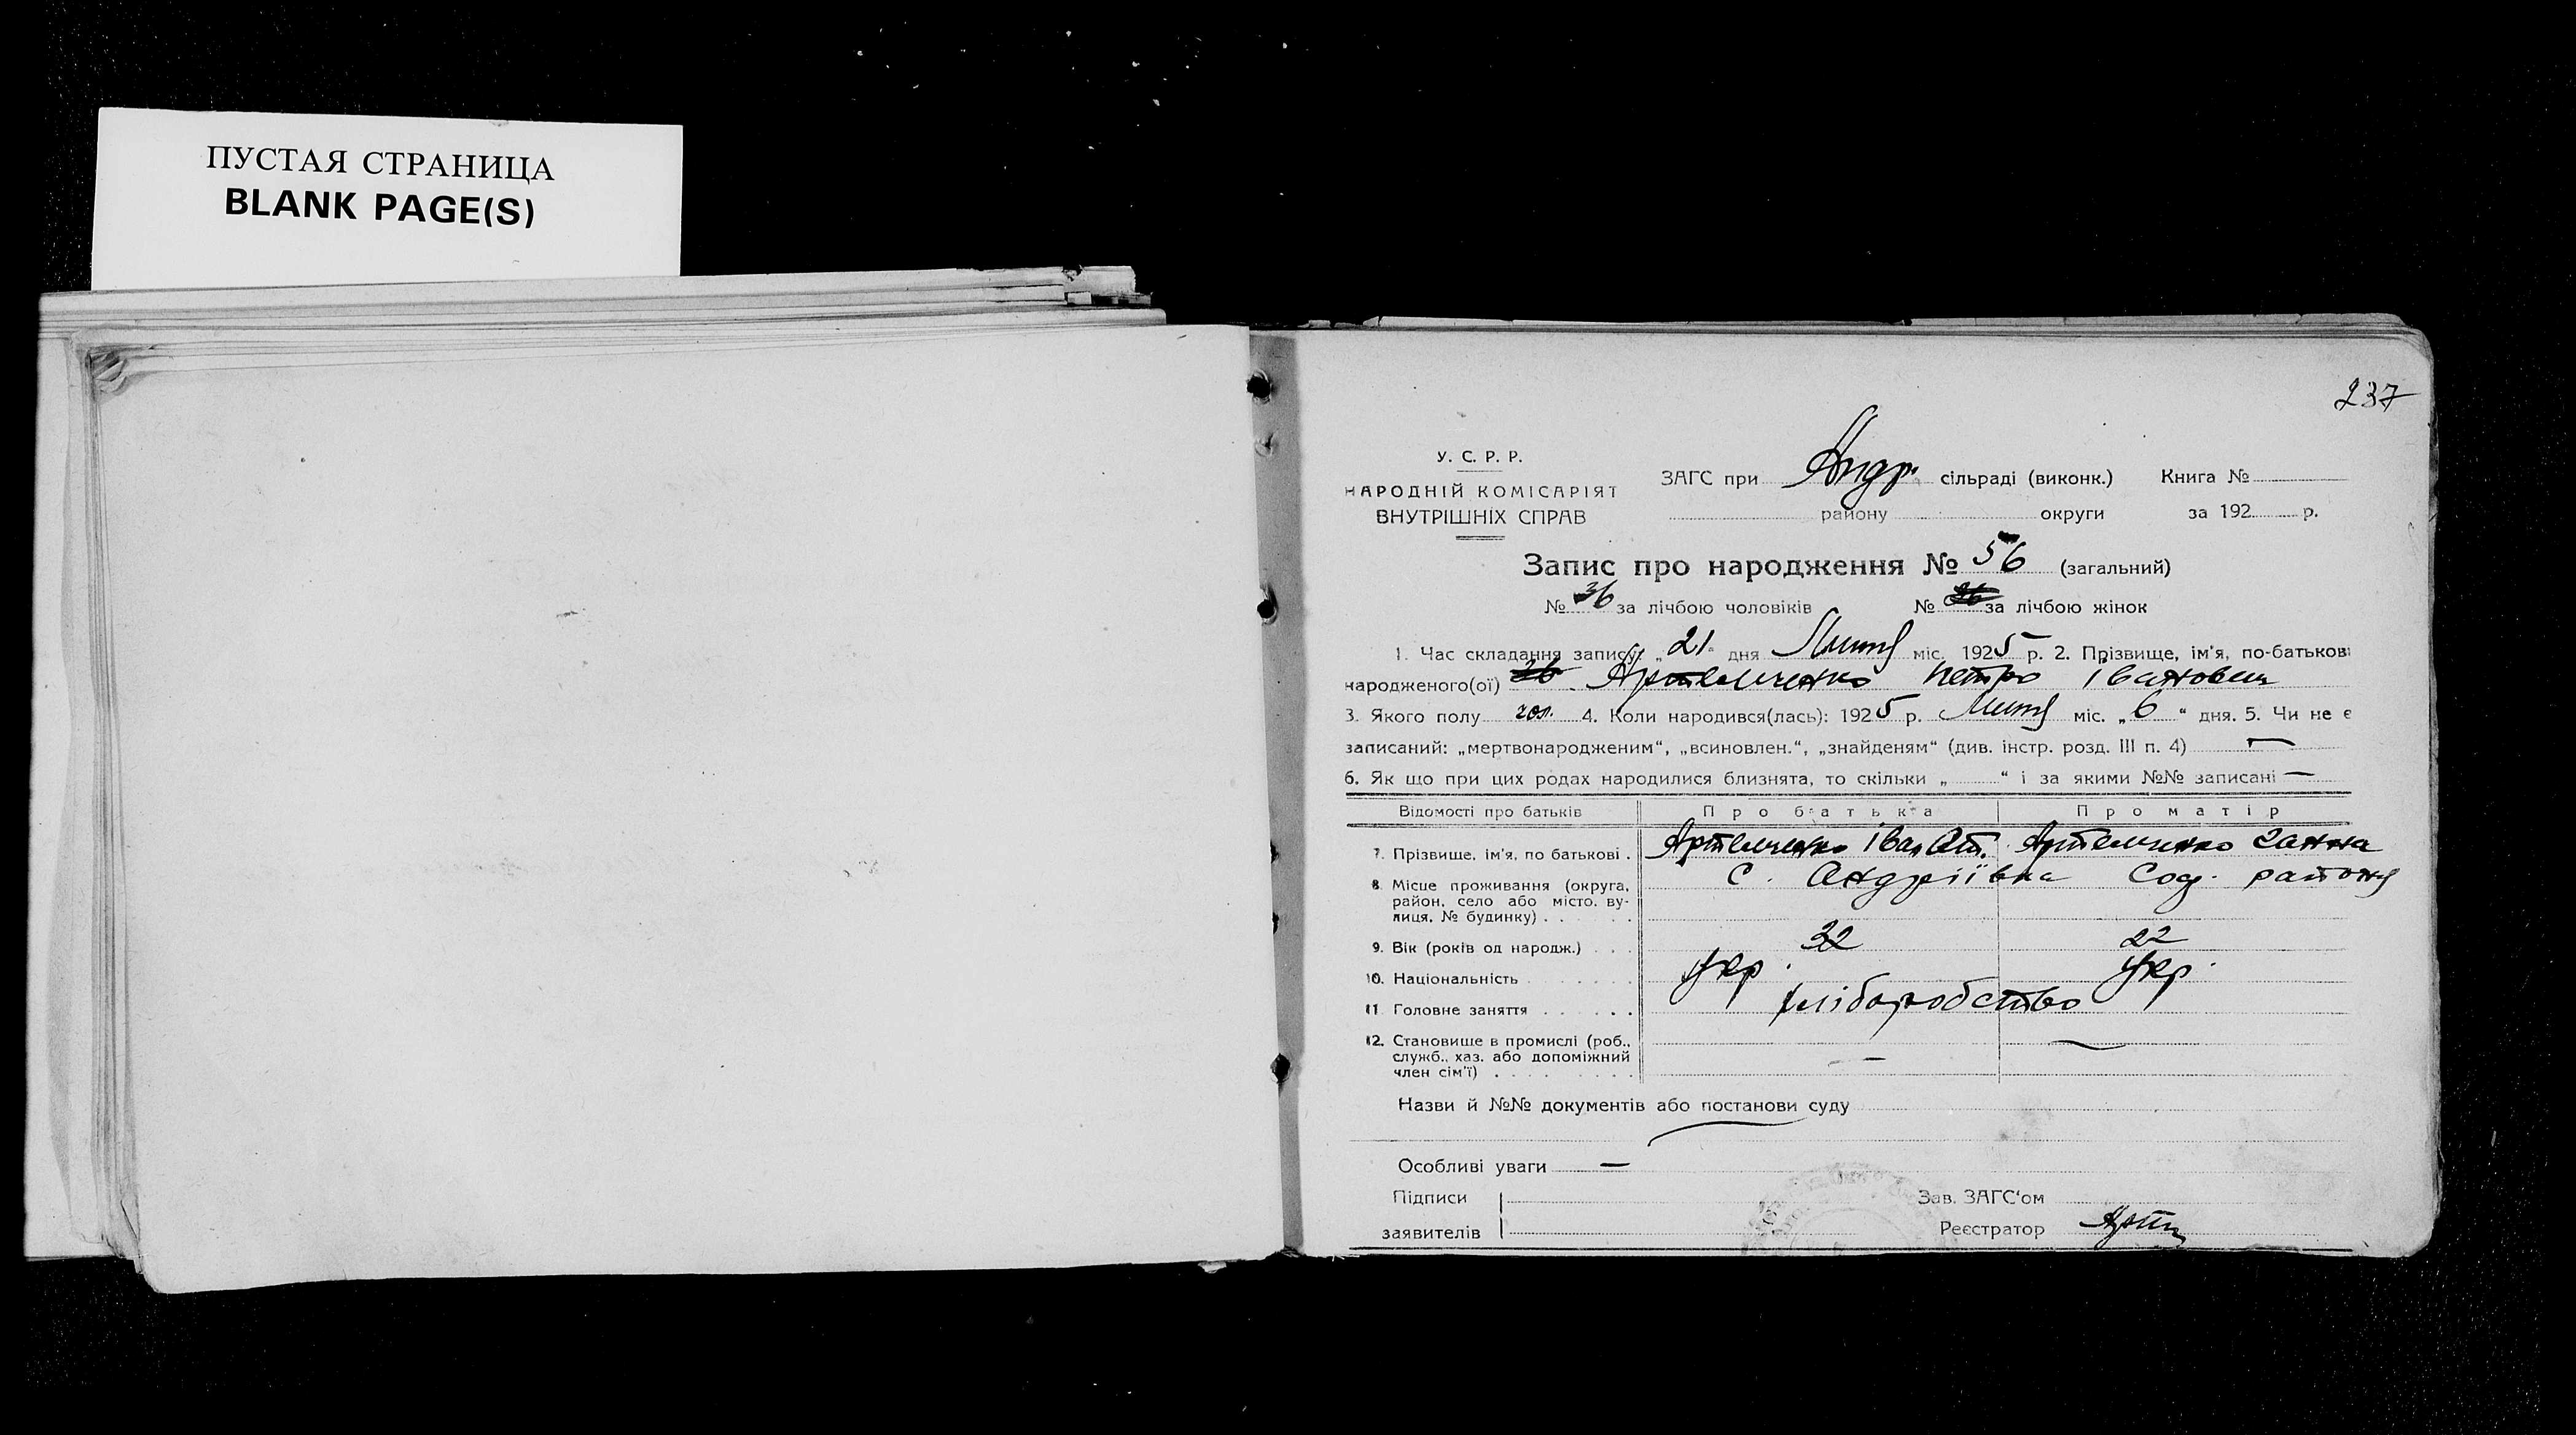 ПУСТАЯ СТРАНИЦА
BLANK PAGE(S)
237
У. С. Р. Р.
НАРОДНІЙ КОМІСАРІЯТ
ВНУТРІШНІХ СПРАВ
ЗАГС при Андр. сільраді (виконк.) Книга №
району округи за 192 р.
Запис про народження № 56 (загальний)
№ 36 за лічбою чоловіків № за лічбою жінок
1. Час складання запису „21" дня Лют міс. 1925 р. 2. Прізвище, ім'я, по-батькові
народженого(ої) Артемченко Петро Іванович
3. Якого полу чол. 4. Коли народився(лась): 1925 р. Лют міс. „6" дня. 5. Чи не є
записаний: „мертвонародженим", „всиновлен.", „знайденям" (див. інстр. розд. III п. 4) —
6. Як що при цих родах народилися близнята, то скільки „ " і за якими №№ записані —
Відомості про батьків Про батька Про матір
7. Прізвище, ім'я, по батькові . Артемченко Іван Ст. Артемченко Ганна
8. Місце проживання (округа, район, село або місто, вулиця, № будинку) . . . с. Андріївка Сод. району
9. Вік (років од народж.) . . . 32 22
10. Національність . . . . . . укр. укр.
11. Головне заняття . . . . . . хліборобство
12. Становище в промислі (роб., служб., хаз. або допоміжний член сім'ї) . . . . . . . . — —
Назви й №№ документів або постанови суду
Особливі уваги —
Підписи
заявителів
Зав. ЗАГС'ом
Реєстратор